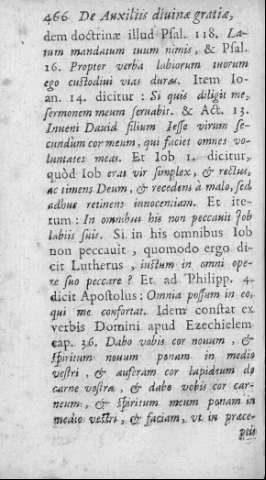 466 De Auxiliis diuinæ gratiæ,
dem doctrinæ illud Psal. 118. La-
tum mandatum tuum nimis, & Psal.
16. Propter verba labiorum tuorum
ego custodiui vias duras. Item Io-
an. 14. dicitur : Si quis diligit me,
sermonem meum seruabit. & Act. 13.
Inueni Dauid filium Iesse virum se-
cundùm cor meum, qui faciet omnes vo-
luntates meas. Et Iob 1. dicitur,
quòd Iob erat vir simplex, & rectus,
ac timens Deum, & recedens à malo, sed
adhuc retinens innocentiam. Et ite-
rum : In omnibus his non peccauit Iob
labiis suis. Si in his omnibus Iob
non peccauit, quomodo ergo di-
cit Lutherus , iustum in omni ope-
re suo peccare ? Et ad Philipp. 4.
dicit Apostolus : Omnia possum in eo,
qui me confortat. Idem constat ex
verbis Domini apud Ezechielem
cap. 36. Dabo vobis cor nouum , &
spiritum nouum ponam in medio
vestri , & auferam cor lapideum de
carne vestra , & dabo vobis cor car-
neum, & spiritum meum ponam in
medio vestri, & faciam, vt in præce-
ptis